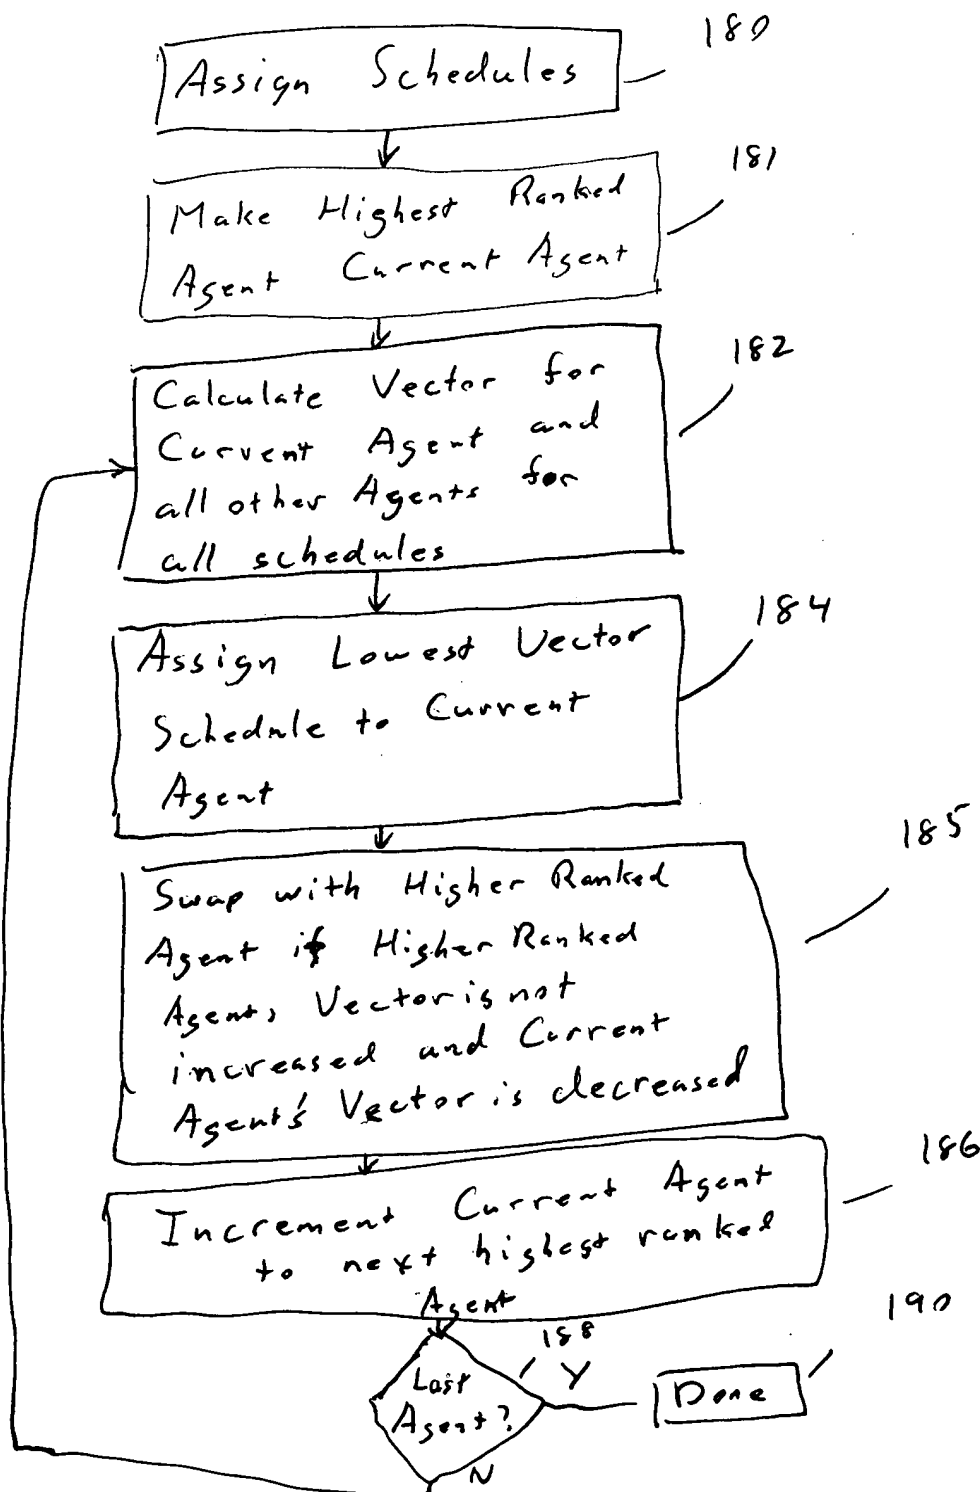 180
Assign Schedules
181
Make Highest Ranked
Agent Current Agent
182
Calculate Vector for
Current Agent and
all other Agents for
all schedules
184
Assign Lowest Vector
Schedule to Current
Agent
185
Swap with Higher Ranked
Agent if Higher Ranked
Agents, Vector is not
increased and Current
Agent's Vector is decreased
186
Increment Current Agent
to next highest ranked
Agent
188
190
Last
Agent?
Y
Done
N